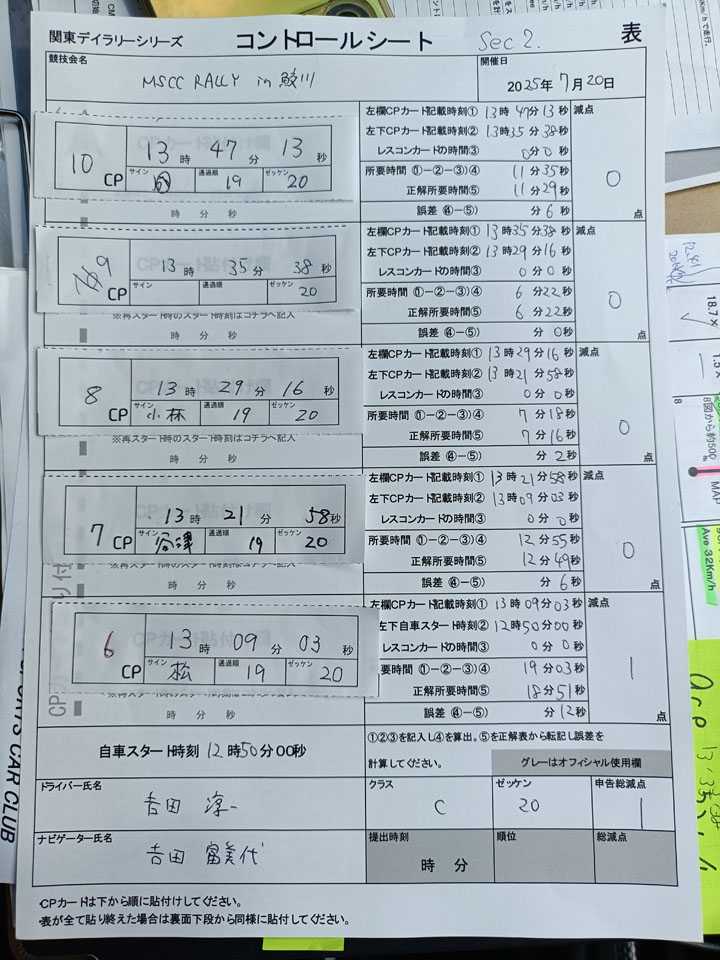 関東デイラリーシリーズ コントロールシート Sec 2. 表
競技会名 MSCC RALLY in 鮫川 開催日 2025年7月20日
10 CP 13時 47分 13秒
サイン 通過順 19 ゼッケン 20
時 分 秒
左欄CPカード記載時刻① 13時47分13秒 減点
左下CPカード記載時刻② 13時35分38秒
レスコンカードの時間③ 0分0秒
所要時間 (①-②-③)④ 11分35秒
正解所要時間⑤ 11分29秒
誤差 (④-⑤) 分6秒
0点
9 CP 13時 35分 38秒
サイン 通過順 ゼッケン 20
※再スタート時のスタート時刻はコチラへ記入
時 分 秒
左欄CPカード記載時刻① 13時35分38秒 減点
左下CPカード記載時刻② 13時29分16秒
レスコンカードの時間③ 0分0秒
所要時間 (①-②-③)④ 6分22秒
正解所要時間⑤ 6分22秒
誤差 (④-⑤) 分0秒
0点
8 CP 13時 29分 16秒
サイン 小林 通過順 19 ゼッケン 20
※再スタート時のスタート時刻はコチラへ記入
時 分 秒
左欄CPカード記載時刻① 13時29分16秒 減点
左下CPカード記載時刻② 13時21分58秒
レスコンカードの時間③ 0分0秒
所要時間 (①-②-③)④ 7分18秒
正解所要時間⑤ 7分16秒
誤差 (④-⑤) 分2秒
0点
7 CP 13時 21分 58秒
サイン 通過順 19 ゼッケン 20
※再スタート時のスタート時刻はコチラへ記入
時 分 秒
左欄CPカード記載時刻① 13時21分58秒 減点
左下CPカード記載時刻② 13時09分03秒
レスコンカードの時間③ 0分0秒
所要時間 (①-②-③)④ 12分55秒
正解所要時間⑤ 12分49秒
誤差 (④-⑤) 分6秒
0点
6 CP 13時 09分 03秒
サイン 松 通過順 19 ゼッケン 20
時 分 秒
左欄CPカード記載時刻① 13時09分03秒 減点
左下自車スタート時刻② 12時50分00秒
レスコンカードの時間③ 0分0秒
要時間 (①-②-③)④ 19分03秒
正解所要時間⑤ 18分51秒
誤差 (④-⑤) 分12秒
1点
自車スタート時刻 12時50分00秒
①②③を記入し④を算出。⑤を正解表から転記し誤差を
計算してください。 グレーはオフィシャル使用欄
ドライバー氏名 吉田 淳一
クラス C ゼッケン 20 申告総減点 1
ナビゲーター氏名 吉田 富美代
提出時刻 時 分 順位 総減点
・CPカードは下から順に貼付けしてください。
・表が全て貼り終えた場合は裏面下段から同様に貼付してください。
18.7×
8図から約500
8
MAP
Ave 32Km/h
ORTS CAR CLUB